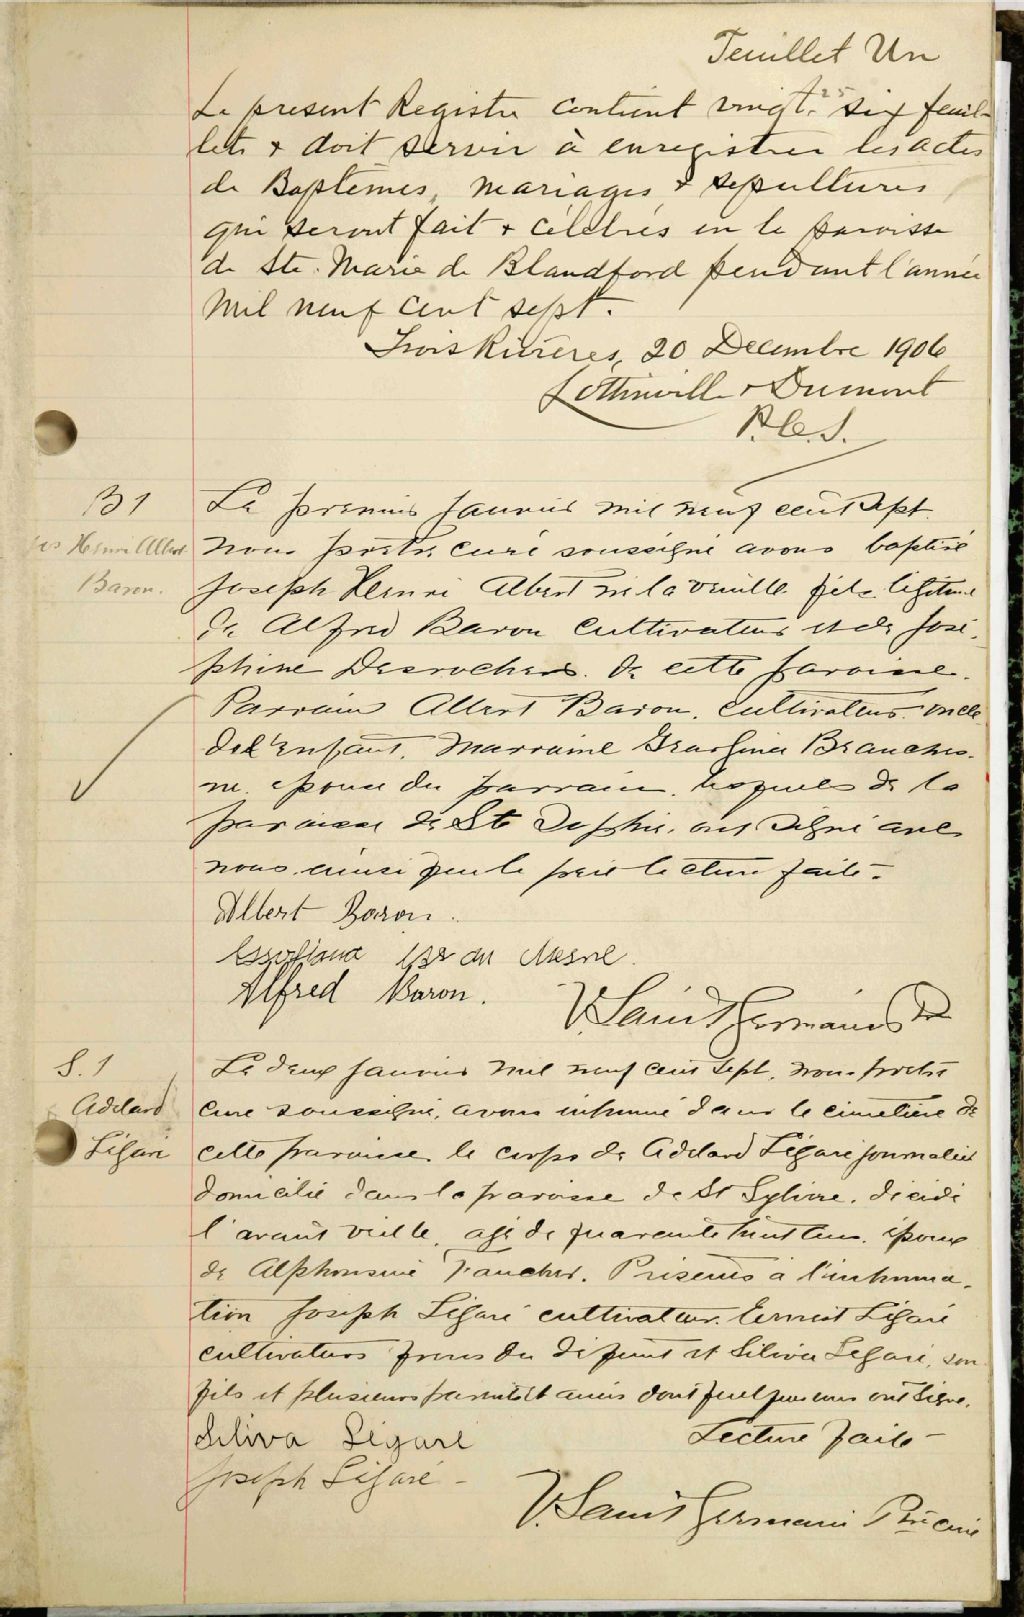 Feuillet Un
Le present Registre contient vingt-six feuil-
25
lets & doit servir à enregistrer les actes
de Baptêmes, mariages & sepultures
qui seront fait & célébrés en la paroisse
de Ste. Marie de Blandford pendant l'année
mil neuf cent sept.
Trois Rivières, 20 Decembre 1906
Lottinville & Dumont
P.C.S.
B 1
Jos Henri Albert
Baron.
Le premier janvier mil neuf cent sept
nous prêtre curé soussigné avons baptisé
Joseph Henri Albert né la veille fils légitime
de Alfred Baron cultivateur et de José-
phine Desrochers de cette paroisse.
Parrain Albert Baron, cultivateur oncle
de l'enfant, marraine Branches-
ne épouse du parrain, lesquels de la
paroisse de Ste Sophie, ont signé avec
nous ainsi que le père lecture faite.
Albert Baron.
Alfred Baron.
V. Saint Germain Ptre
S. 1
Adelard
Légaré
Le deux janvier mil neuf cent sept, nous prêtre
curé soussigné, avons inhumé dans le cimetière de
cette paroisse le corps de Adelard Légaré journalier
domicilié dans la paroisse de St Sylvère, décédé
l'avant veille, agé de quarante huit ans, époux
de Alphonsine Faucher. Présents à l'inhuma-
tion Joseph Légaré cultivateur Ernest Légaré
cultivateurs frères du défunt et Siliva Légaré, son
fils et plusieurs parents et amis dont quelques uns ont signé.
Lecture faite -
Siliva Légaré
Joseph Légaré -
V. Saint Germain Ptre curé